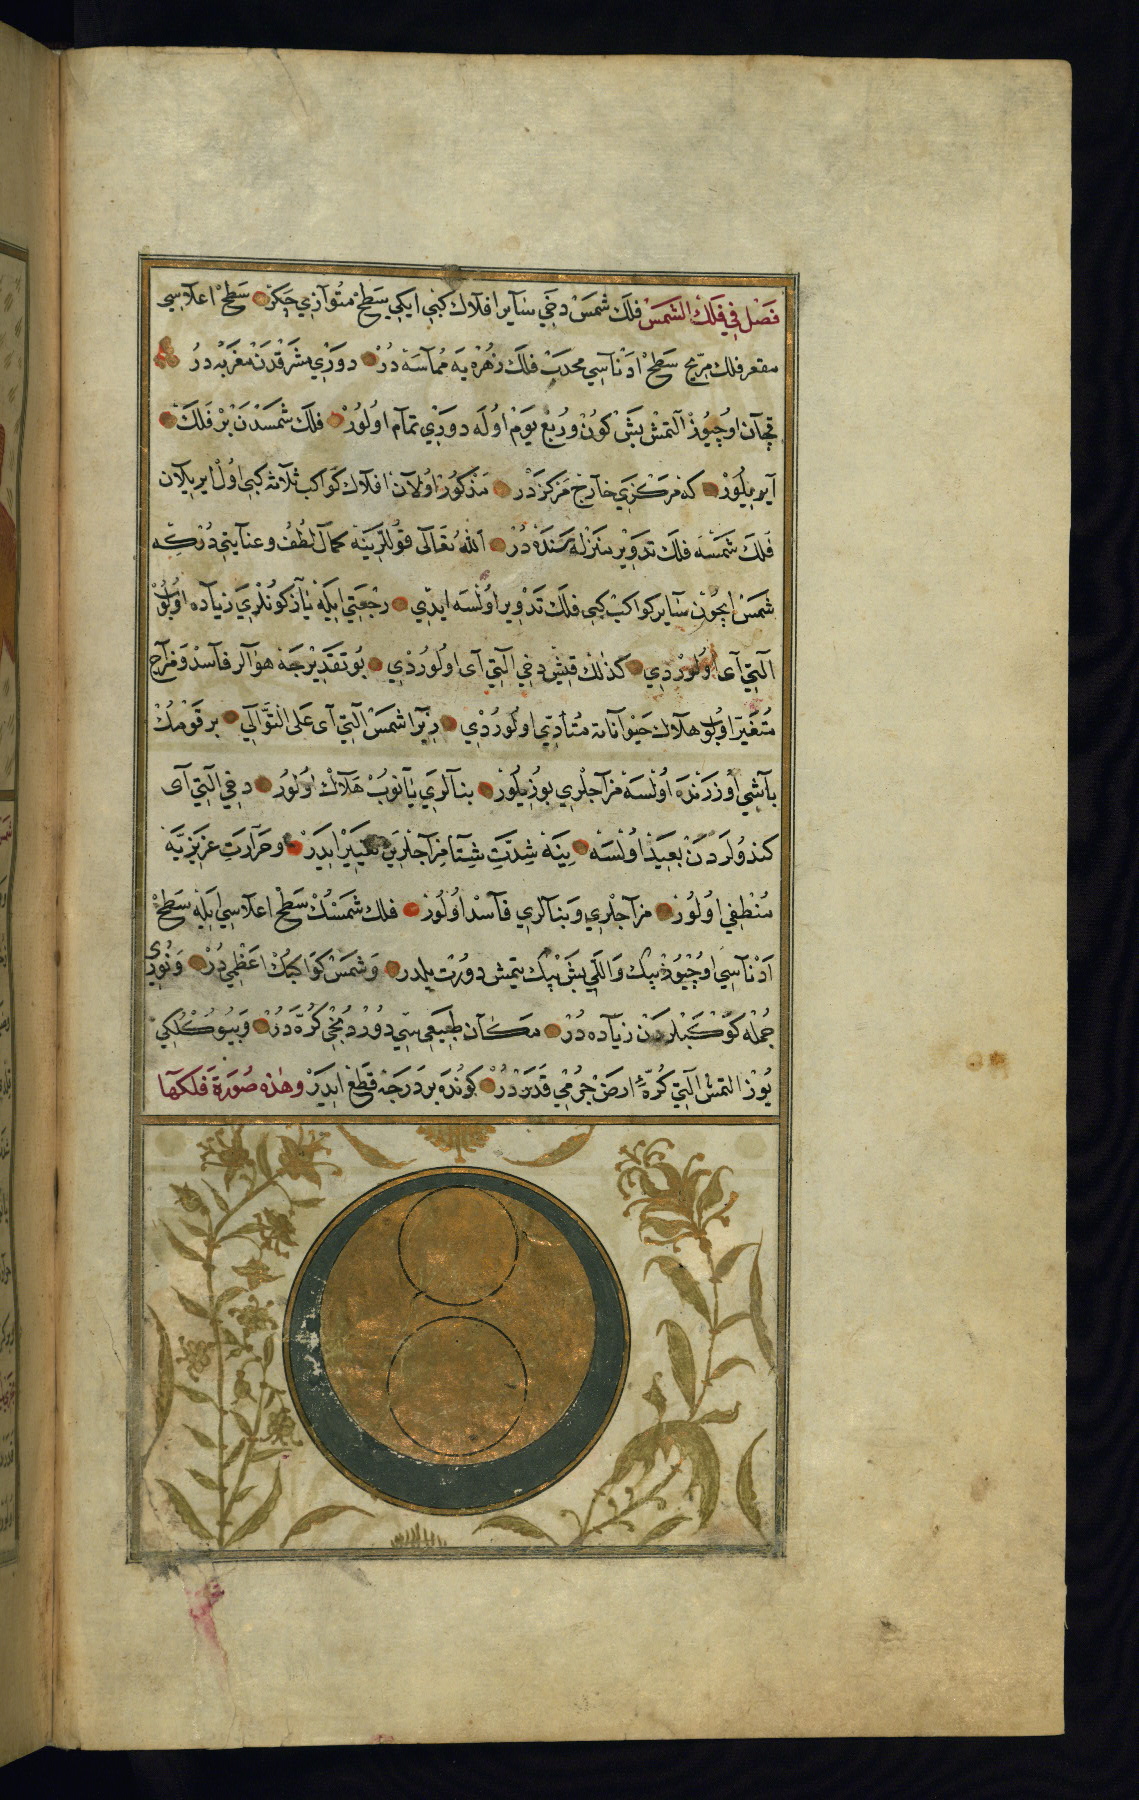 فصل في فلك الشمس فلك شمس دخي ساير افلاك كبي ايكي سطح متوازي چكر سطح اعلاسي
مقعر فلك مريخ سطح ادناسي محدب فلك زهره يه مماسه در دوري مشرقدن مغربه در
قچان اوچيوز التمش بش كون وربع يوم اوله دوري تمام اولور فلك شمسدن بر فلك
آيريلور كه مركزي خارج مركزدر مذكور اولان افلاك كواكب ثلاثه كبي اول ايريلان
فلك شمسه فلك تدوير منزله سنده در الله تعالى قوللرينه كمال لطف وعنايتي در كه
شمس ايچون ساير كواكب كبي فلك تدوير اولسه ايدي رجعتي ايله ياز كونلري زياده اولوب
التي آى اولوردي كذلك قيش دخي التي آى اولوردي بو تقديرجه هوالر فاسد ومزاج
متغير اولوب هلاك حيواناته متأدي اولوردي زيرا شمس التي آى على التوالي بر قومك
باشي اوزرنده اولسه مزاجلري بوزيلور بنالري يانوب هلاك اولور دخي التي آى
كندولردن بعيد اولسه ينه شدت شتا مزاجلرين تغيير ايدر وحرارت غريزيه
منطفي اولور مزاجلري وبنالري فاسد اولور فلك شمسك سطح اعلاسي ايله سطح
ادناسي اوچيوز بيك واللي بش بيك يتمش دورت يلدر وشمس كواكبك اعظمي در ونوري
جمله كوكبلردن زياده در مكان طبيعي سي دوردمجي كره در وبيوكلكي
يوز التمش التي كرهٔ ارض جرمي قدردر كونده بر درجه قطع ايدر وهذه صورة فلكها